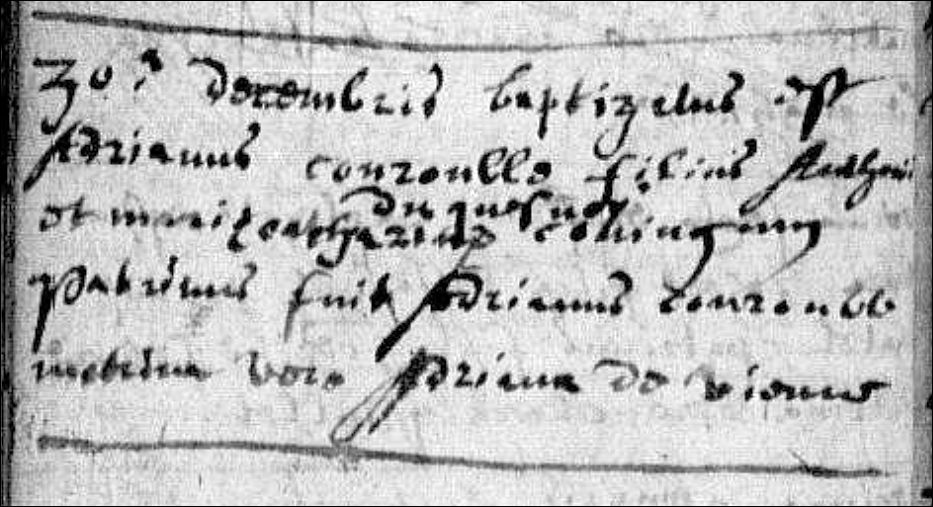 30ª decembris baptizatus est
Adrianus couroulle filius Anthonii
du quesnoy
et mariæ catharinæ coniugum
patrinus fuit Adrianus couroulle
matrina vero Adriana de vienne